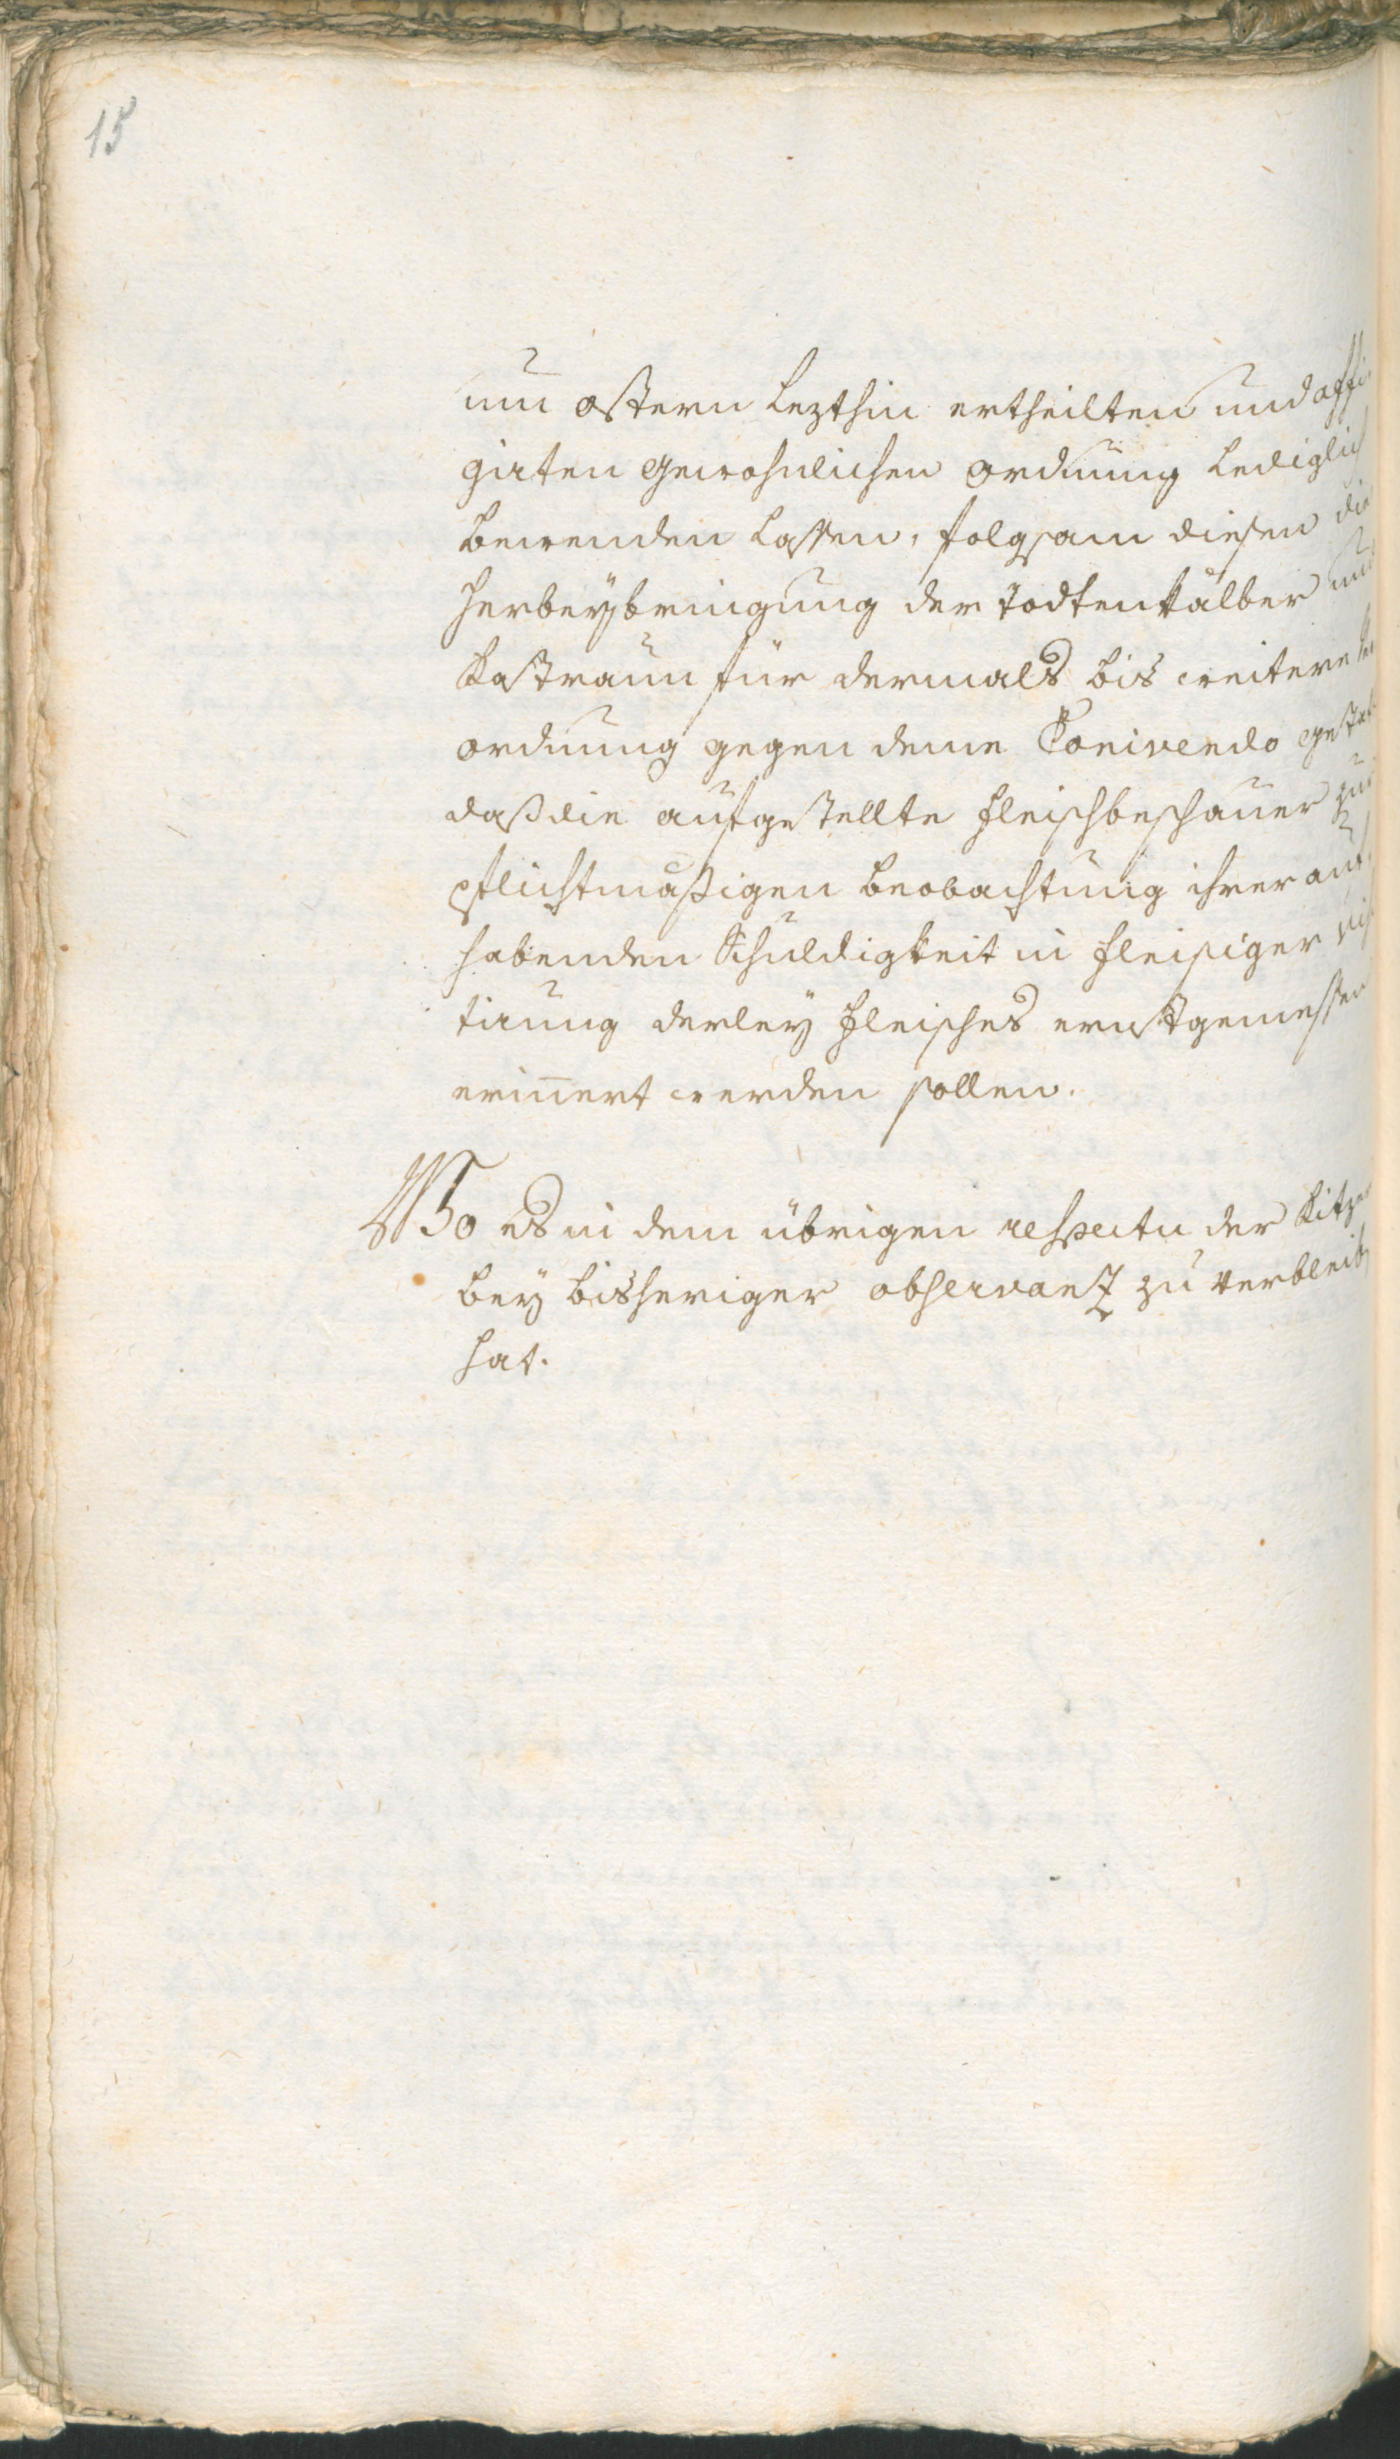 15
um ostern lezthin ertheilten und affi
girten gewohnlichen ordnung lediglich
bewenden lassen, folgsam diesen die
herbeybringung der todten kälber und
Kastraun für dermals bis weitere
ordnung gegen deme Conivendo
daß die aufgestellte fleischbeschauer zur
pflichtmäßigen beobachtung ihrer auf
habenden Schuldigkeit in fleisiger visi
tirung derley fleisches ernstgemessen
erinnert werden sollen.
Wo es in dem übrigen respectu der Kitzen
bey bisheriger observanz zu verbleiben
hat.